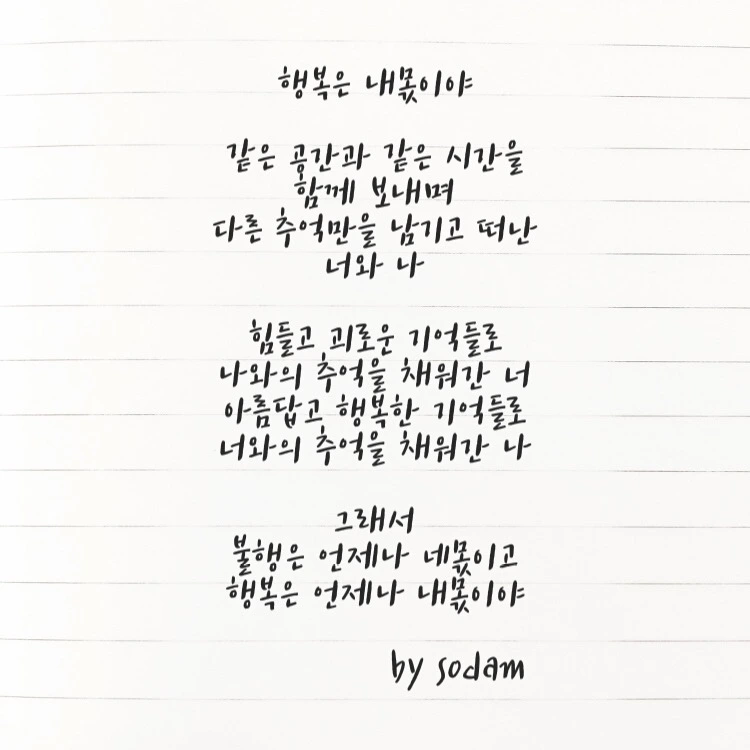 행복은 내몫이야
같은 공간과 같은 시간을
함께 보내며
다른 추억만을 남기고 떠난
너와 나
힘들고 괴로운 기억들로
나와의 추억을 채워간 너
아름답고 행복한 기억들로
너와의 추억을 채워간 나
그래서
불행은 언제나 네몫이고
행복은 언제나 내몫이야
by sodam